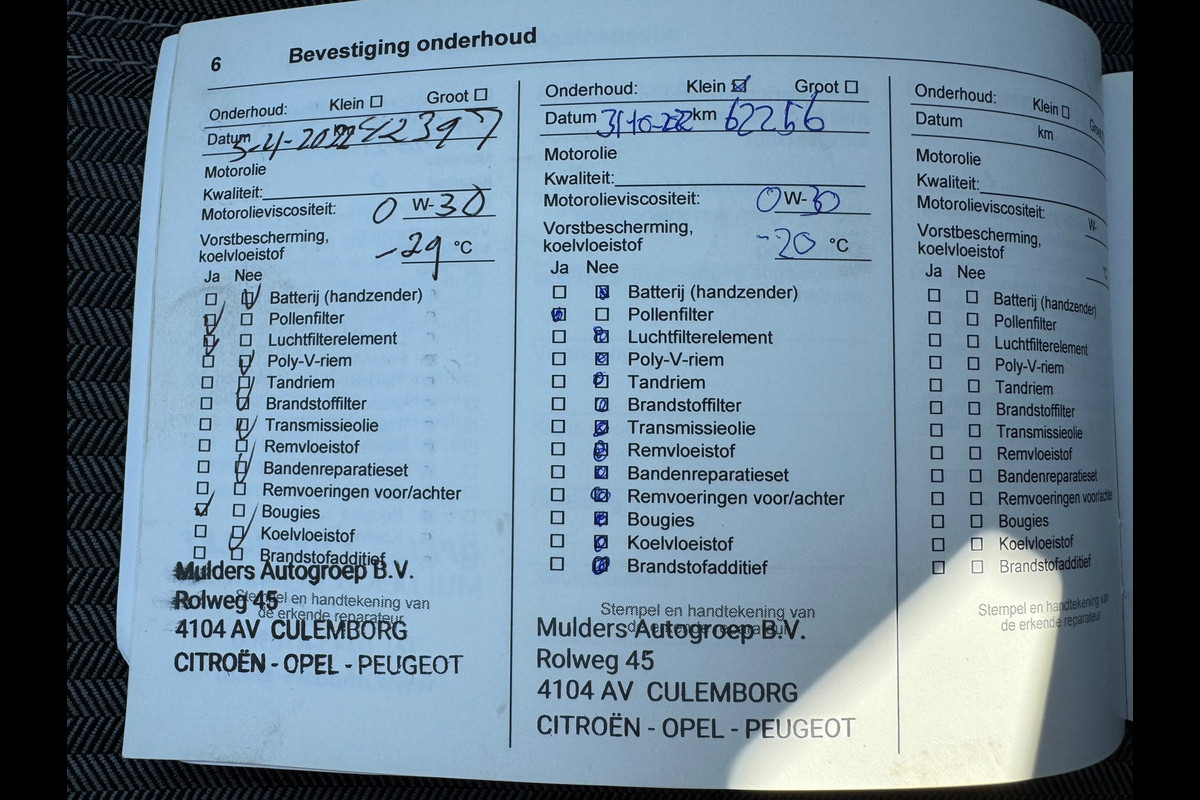 6 Bevestiging onderhoud
Onderhoud: Klein ☐ Groot ☐
Datum 5-4-2022 42397
Motorolie
Kwaliteit:
Motorolieviscositeit: 0 W-30
Vorstbescherming,
koelvloeistof -29 °C
Ja Nee
Batterij (handzender)
Pollenfilter
Luchtfilterelement
Poly-V-riem
Tandriem
Brandstoffilter
Transmissieolie
Remvloeistof
Bandenreparatieset
Remvoeringen voor/achter
Bougies
Koelvloeistof
Brandstofadditief
Stempel en handtekening van
de erkende reparateur
Mulders Autogroep B.V.
Rolweg 45
4104 AV CULEMBORG
CITROËN - OPEL - PEUGEOT
Onderhoud: Klein ☒ Groot ☐
Datum 31-10-2022 km 62256
Motorolie
Kwaliteit:
Motorolieviscositeit: 0 W-30
Vorstbescherming,
koelvloeistof -20 °C
Ja Nee
Batterij (handzender)
Pollenfilter
Luchtfilterelement
Poly-V-riem
Tandriem
Brandstoffilter
Transmissieolie
Remvloeistof
Bandenreparatieset
Remvoeringen voor/achter
Bougies
Koelvloeistof
Brandstofadditief
Stempel en handtekening van
de erkende reparateur
Mulders Autogroep B.V.
Rolweg 45
4104 AV CULEMBORG
CITROËN - OPEL - PEUGEOT
Onderhoud: Klein ☐
Datum km
Motorolie
Kwaliteit:
Motorolieviscositeit: W-
Vorstbescherming,
koelvloeistof
Ja Nee
Batterij (handzender)
Pollenfilter
Luchtfilterelement
Poly-V-riem
Tandriem
Brandstoffilter
Transmissieolie
Remvloeistof
Bandenreparatieset
Remvoeringen voor/achter
Bougies
Koelvloeistof
Brandstofadditief
Stempel en handtekening van
de erkende reparateur